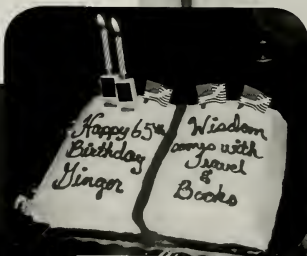 Happy 65th
Birthday
Ginger
Wisdom
comes with
Travel
&
Books